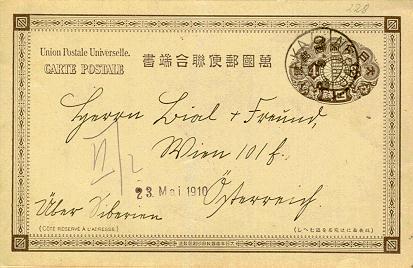 228
Union Postale Universelle.
CARTE POSTALE
書端合聯便郵國萬
Herrn Bial + Freund,
Wien 101 f.
23 Mai 1910
Österreich.
Über Siberien
(CÔTÉ RÉSERVÉ À L'ADRESSE)